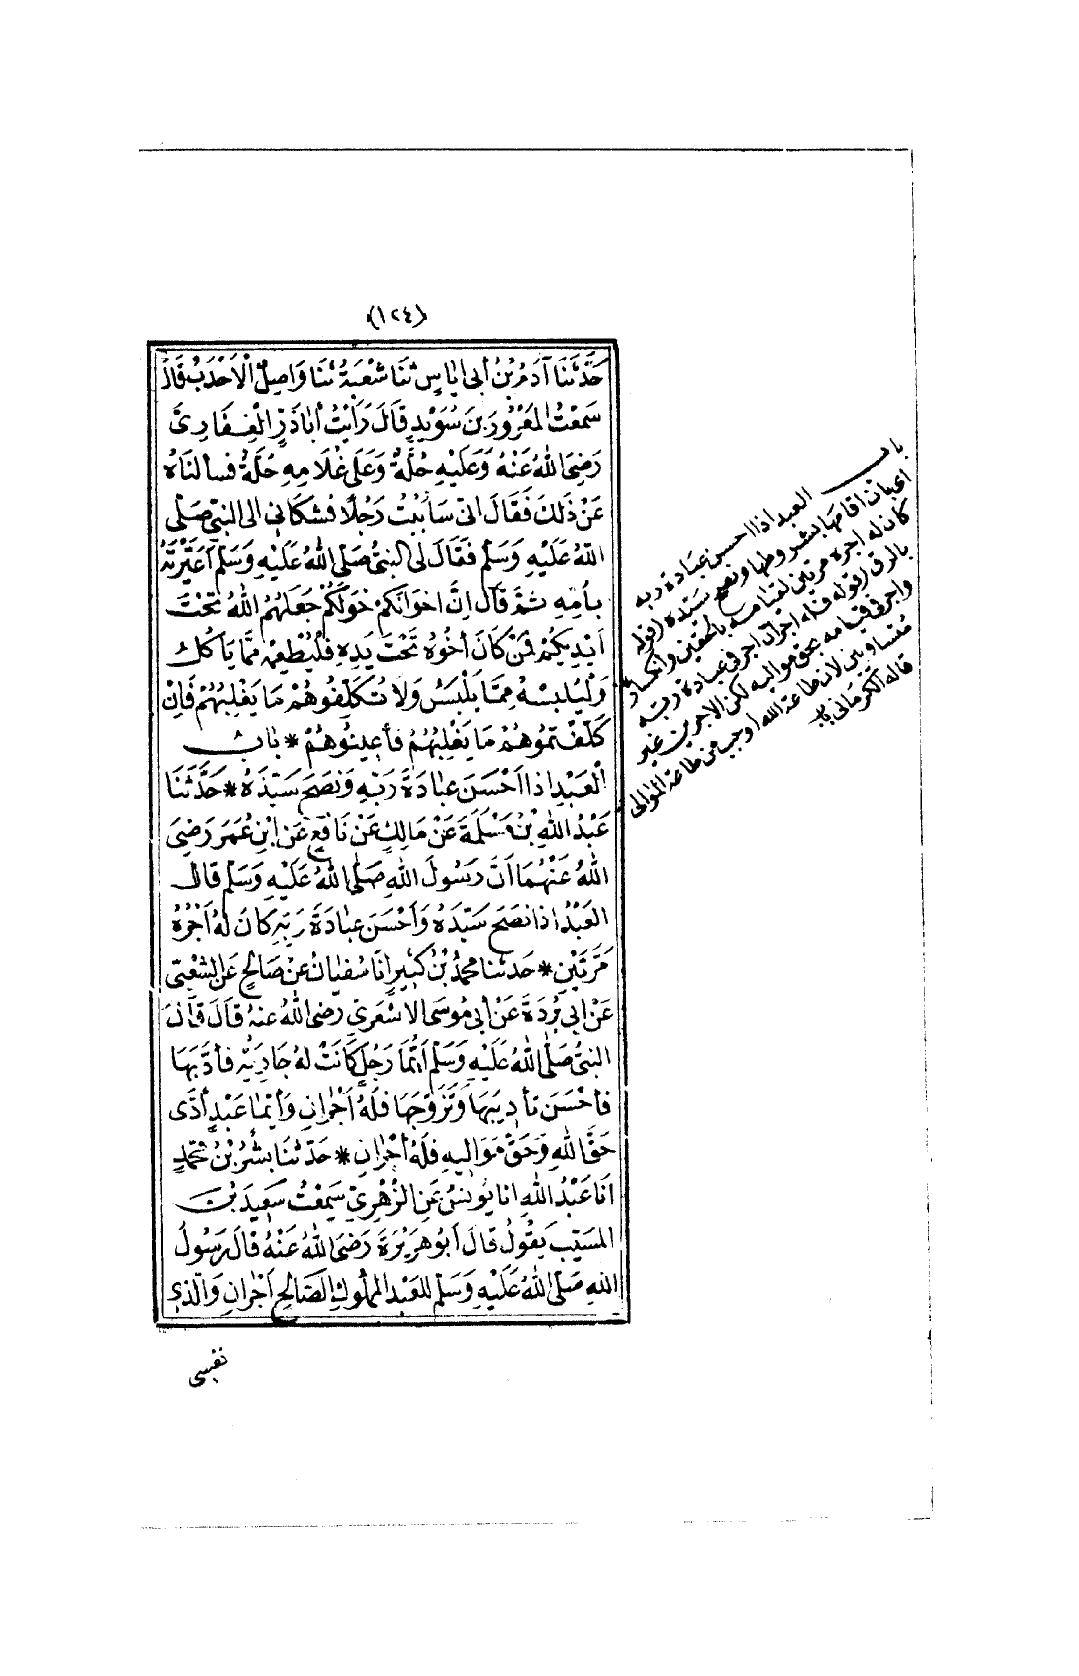 (١٢٤)
حَدَّثَنَا آدَمُ بْنُ أَبِى اِيَاسٍ ثَنَا شُعْبَةُ ثَنَا وَاصِلٌ الْاَحْدَبُ قَالَ
سَمِعْتُ الْمَعْرُورَ بْنَ سُوَيْدٍ قَالَ رَاَيْتُ أَبَا ذَرٍّ الْغِفَارِىَّ
رَضِىَ اللهُ عَنْهُ وَعَلَيْهِ حُلَّةٌ وَعَلَى غُلَامِهِ حُلَّةٌ فَسألْنَاهُ
عَنْ ذَلِكَ فَقَالَ اِنِّى سَابَبْتُ رَجُلًا فَشَكَانِى اِلَى النَّبِىِّ صَلَّى
اللهُ عَلَيْهِ وَسَلَّمَ فَقَالَ لِى النَّبِىُّ صَلَّى اللهُ عَلَيْهِ وَسَلَّمَ اَعَيَّرْتَهُ
بِأُمِّهِ ثُمَّ قَالَ اِنَّ اِخْوَانَكُمْ خَوَلُكُمْ جَعَلَهُمُ اللهُ تَحْتَ
اَيْدِيكُمْ فَمَنْ كَانَ أَخُوهُ تَحْتَ يَدِهِ فَلْيُطْعِمْهُ مِمَّا يَأْكُلُ
وَلْيُلْبِسْهُ مِمَّا يَلْبَسُ وَلَا تُكَلِّفُوهُمْ مَا يَغْلِبُهُمْ فَاِنْ
كَلَّفْتُمُوهُمْ مَا يَغْلِبُهُمْ فَأَعِينُوهُمْ * بَابُ
الْعَبْدِ اِذَا اَحْسَنَ عِبَادَةَ رَبِّهِ وَنَصَحَ سَيِّدَهُ * حَدَّثَنَا
عَبْدُ اللهِ بْنُ مَسْلَمَةَ عَنْ مَالِكٍ عَنْ نَافِعٍ عَنِ ابْنِ عُمَرَ رَضِىَ
اللهُ عَنْهُمَا اَنَّ رَسُولَ اللهِ صَلَّى اللهُ عَلَيْهِ وَسَلَّمَ قَالَ
الْعَبْدُ اِذَا نَصَحَ سَيِّدَهُ وَاَحْسَنَ عِبَادَةَ رَبِّهِ كَانَ لَهُ اَجْرُهُ
مَرَّتَيْنِ * حَدَّثَنَا مُحَمَّدُ بْنُ كَثِيرٍ اَنَا سُفْيَانُ عَنْ صَالِحٍ عَنِ الشَّعْبِىِّ
عَنْ اَبِى بُرْدَةَ عَنْ أَبِى مُوسَى الْاَشْعَرِىِّ رَضِىَ اللهُ عَنْهُ قَالَ قَالَ
النَّبِىُّ صَلَّى اللهُ عَلَيْهِ وَسَلَّمَ اَيُّمَا رَجُلٍ كَانَتْ لَهُ جَارِيَةٌ فَأَدَّبَهَا
فَأَحْسَنَ تَأْدِيبَهَا وَتَزَوَّجَهَا فَلَهُ اَجْرَانِ وَاَيُّمَا عَبْدٍ أَدَّى
حَقَّ اللهِ وَحَقَّ مَوَالِيهِ فَلَهُ أَجْرَانِ * حَدَّثَنَا بِشْرُ بْنُ مُحَمَّدٍ
اَنَا عَبْدُ اللهِ اَنَا يُونُسُ عَنِ الزُّهْرِىِّ سَمِعْتُ سَعِيدَ بْنَ
الْمُسَيَّبِ يَقُولُ قَالَ اَبُو هُرَيْرَةَ رَضِىَ اللهُ عَنْهُ قَالَ رَسُولُ
اللهِ صَلَّى اللهُ عَلَيْهِ وَسَلَّمَ لِلْعَبْدِ الْمَمْلُوكِ الصَّالِحِ اَجْرَانِ وَالَّذِى
نفسى
باب العبد اذا احسن عبادة ربه
اى بان اقامها بشروطها ونصح سيده (قوله
كان له اجره مرتين لقيامه بالحقين وانكساره
بالرق (قوله فله اجران اجر فى عبادة ربه
واجر فى قيامه بحق مواليه لكن الاجرين غير
متساويين لان طاعة الله اوجب من طاعة الموالى
قاله الكرمانى